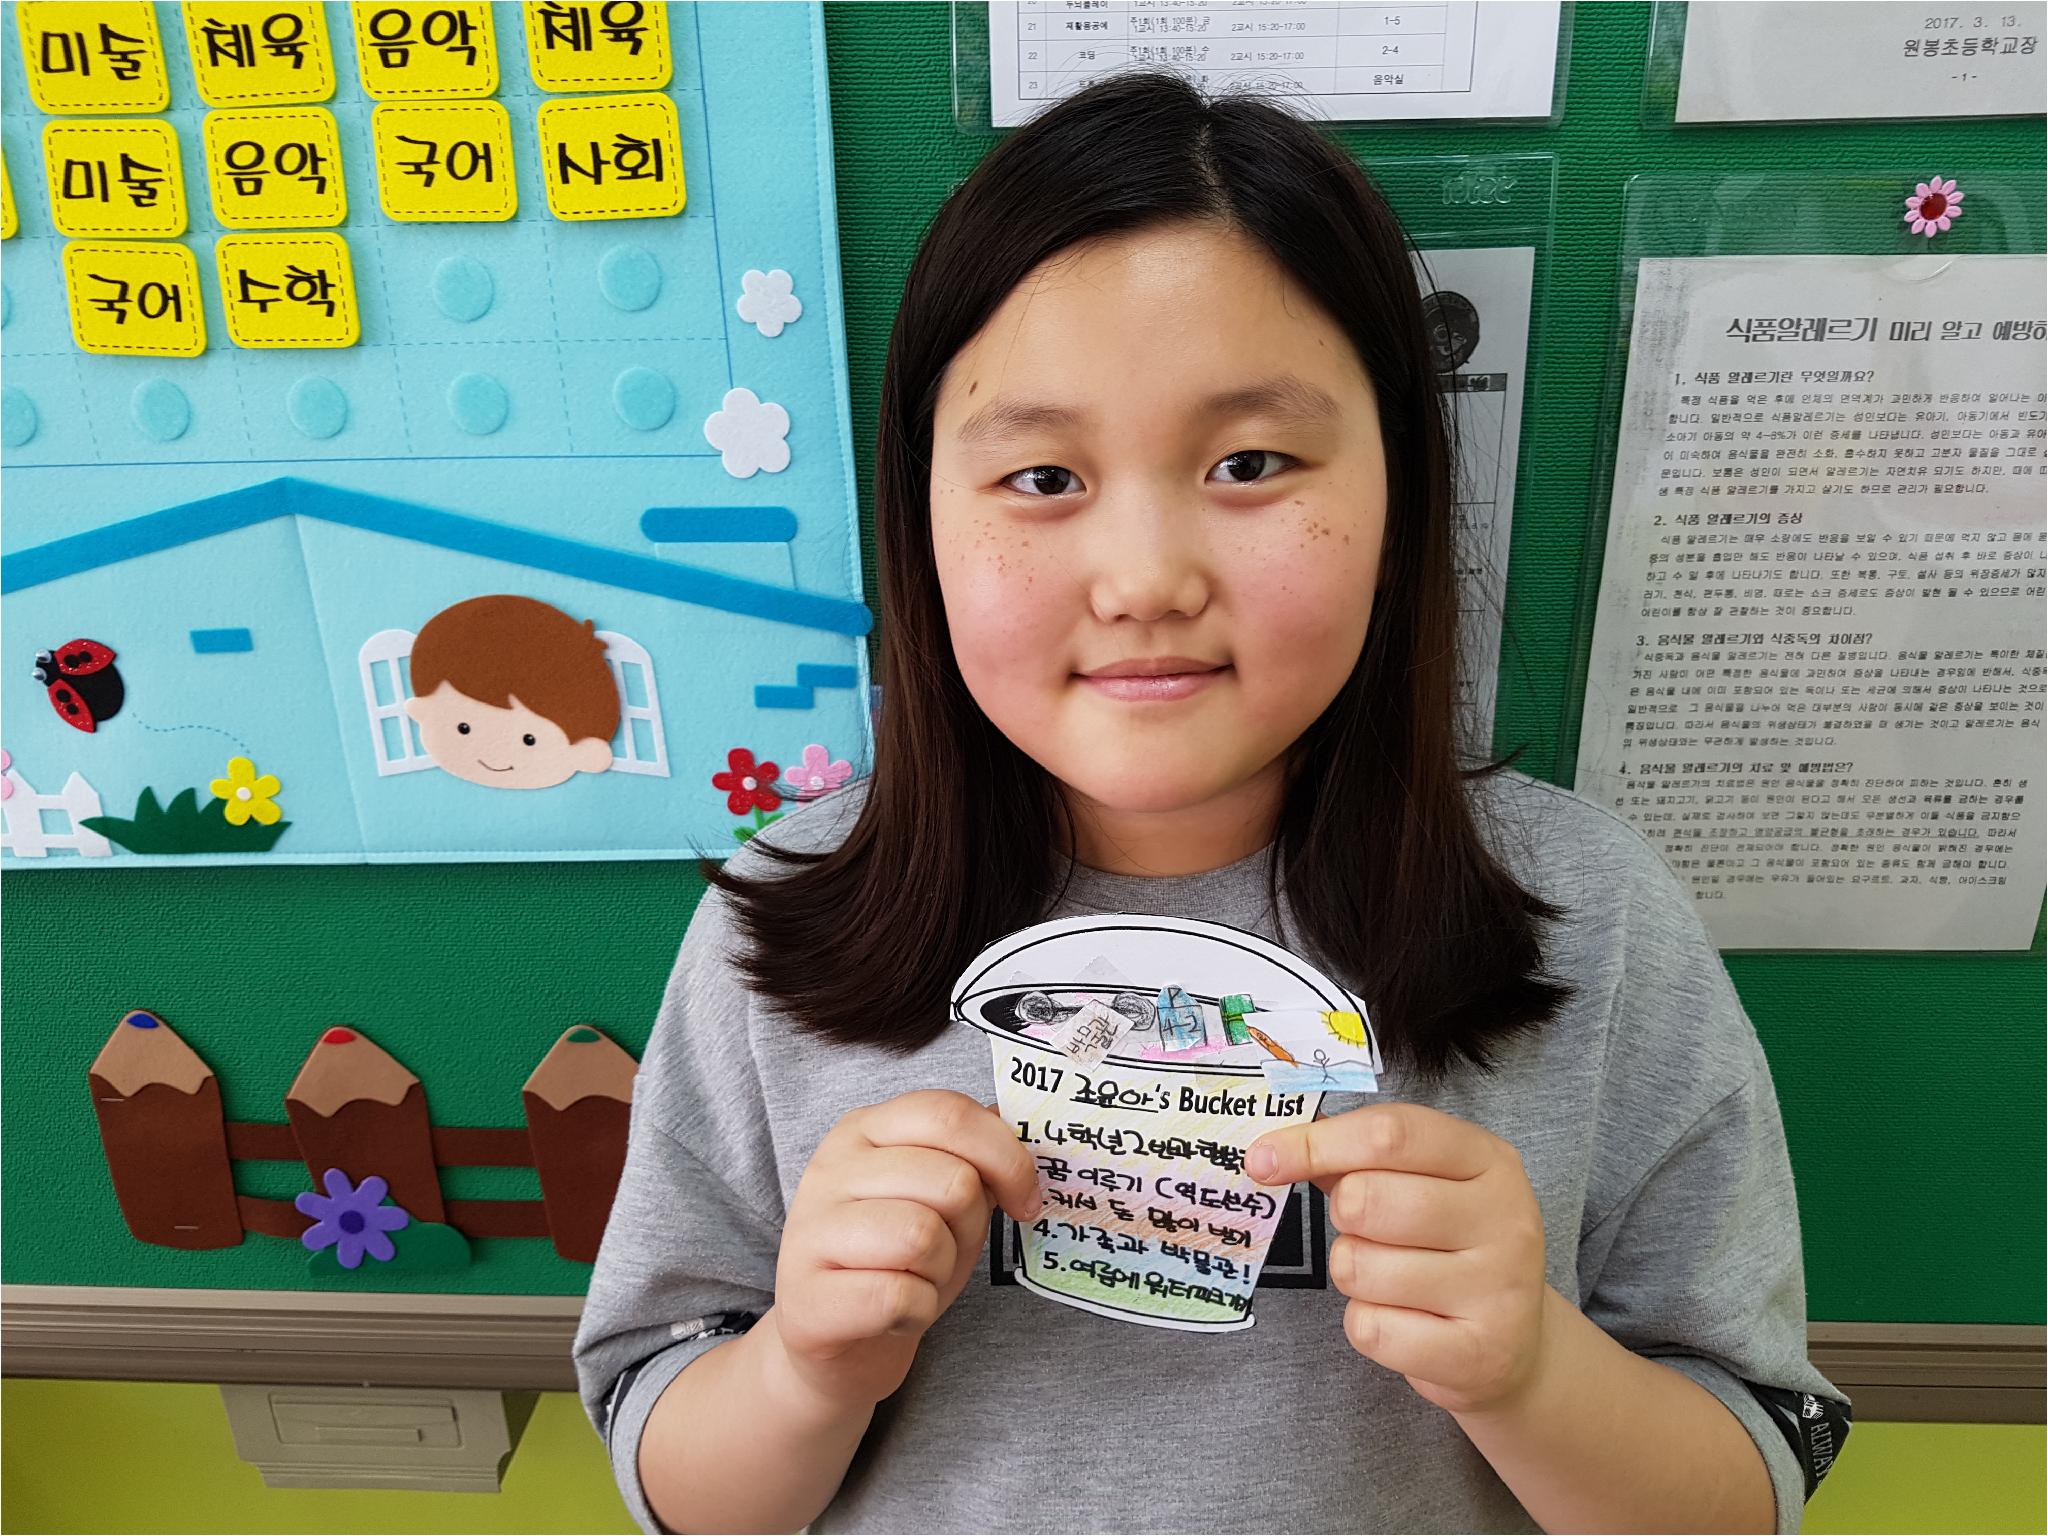 미술 체육 음악 체육
미술 음악 국어 사회
국어 수학
두뇌플레이
21 재활용공예 주1회(1회 100분) 금 1교시 13:40-15:20 2교시 15:20-17:00 1-5
22 코딩 주1회(1회 100분) 수 1교시 13:40-15:20 2교시 15:20-17:00 2-4
23 2교시 15:20-17:00 음악실
2017. 3. 13.
원봉초등학교장
- 1 -
식품알레르기 미리 알고 예방하
1. 식품 알레르기란 무엇일까요?
특정 식품을 먹은 후에 인체의 면역계가 과민하게 반응하여 일어나는
합니다. 일반적으로 식품알레르기는 성인보다는 유아기, 아동기에서 빈도가
소아기 아동의 약 4-8%가 이런 증세를 나타냅니다. 성인보다는 아동과 유아
이 미숙하여 음식물을 완전히 소화, 흡수하지 못하고 고분자 물질을 그대로
문입니다. 보통은 성인이 되면서 알레르기는 자연치유 되기도 하지만, 때에
생 특정 식품 알레르기를 가지고 살기도 하므로 관리가 필요합니다.
2. 식품 알레르기의 증상
식품 알레르기는 매우 소량에도 반응을 보일 수 있기 때문에 먹지 않고 몸에
중의 성분을 흡입만 해도 반응이 나타날 수 있으며, 식품 섭취 후 바로 증상이
하고 수 일 후에 나타나기도 합니다. 또한 복통, 구토, 설사 등의 위장증세가 많지
러기, 천식, 편두통, 비염, 때로는 쇼크 증세로도 증상이 발현 될 수 있으므로 어린
어린이를 항상 잘 관찰하는 것이 중요합니다.
3. 음식물 알레르기와 식중독의 차이점?
식중독과 음식물 알레르기는 전혀 다른 질병입니다. 음식물 알레르기는 특이한 체질
가진 사람이 어떤 특정한 음식물에 과민하여 증상을 나타내는 경우임에 반해서, 식중독
은 음식물 내에 이미 포함되어 있는 독이나 또는 세균에 의해서 증상이 나타나는 것으로
일반적으로 그 음식물을 나누어 먹은 대부분의 사람이 동시에 같은 증상을 보이는 것이
특징입니다. 따라서 음식물의 위생상태가 불결하였을 때 생기는 것이고 알레르기는 음식
의 위생상태와는 무관하게 발생하는 것입니다.
4. 음식물 알레르기의 치료 및 예방법은?
음식물 알레르기의 치료법은 원인 음식물을 정확히 진단하여 피하는 것입니다. 흔히 생
선 또는 돼지고기, 닭고기 등이 원인이 된다고 해서 모든 생선과 육류를 금하는 경우를
수 있는데, 실제로 검사하여 보면 그렇지 않는데도 무분별하게 이들 식품을 금지함으
편식을 조장하고 영양공급의 불균형을 초래하는 경우가 있습니다. 따라서
정확히 진단이 전제되어야 합니다. 정확한 원인 음식물이 밝혀진 경우에는
물론이고 그 음식물이 포함되어 있는 종류도 함께 금해야 합니다.
경우에는 우유가 들어있는 요구르트, 과자, 식빵, 아이스크림
합니다.
박물관
P
4-2
2017 조윤아's Bucket List
1. 4학년 2반과 행복
꿈 이루기 (역도선수)
커서 돈 많이 벌기
4. 가족과 박물관!
5. 여름에 워터파크가기
ALWAY